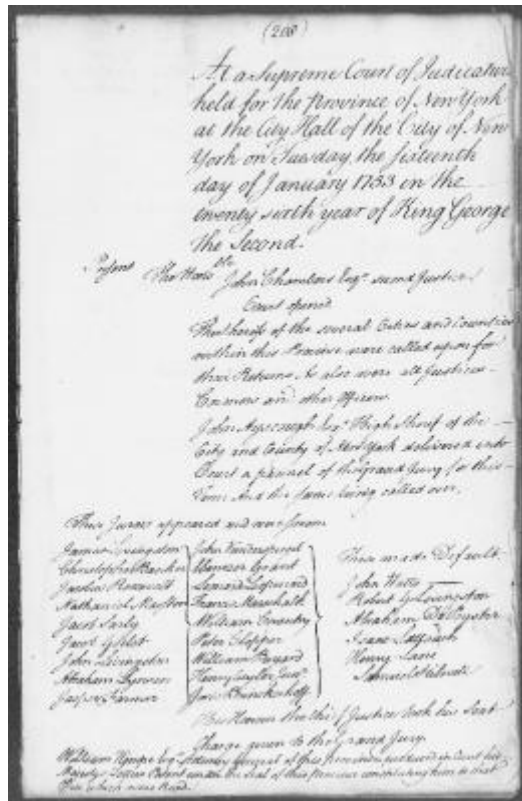 (208)
At a Supreme Court of Judicature
held for the Province of New York
at the City Hall of the City of New
York on Tuesday the sixteenth
day of January 1753 in the
twenty sixth year of King George
the Second.
Present The Honble John Chambers Esqr. second Justice
Court opened
The Sherifs of the several Cities and Counties
within this Province were called upon for
their Returns As also were all Justices
Coroners and other officers.
John Ayscough Esqr. High Sherif of the
City and County of New York delivered into
Court a pannel of the Grand Jury for this
Term And the same being called over,
These Jurors appeared and were sworn
James Livingston John
Christopher Bancker Ebenezer Grant
Jacobus Roosevelt Leonard Lispenard
Nathaniel Marston Francis Marschalk
Jacob Sarly William Coventry
Peter Clopper
John Livingston William Bayard
Abraham Lynsen Henry Cuyler Junr.
Jasper Farmar Joris Brinckerhoff
These made Default.
John Watts
Robert G Livingston
Abraham De Peyster
Isaac
Henry Lane
Samuel
His Honour the Chief Justice took his Seat
Charge given to the Grand Jury.
William Kempe Esqr. Attorney General of this Province produced in Court his
Majestys Letters Patent under the Seal of this Province constituting him to that
Office which were Read.